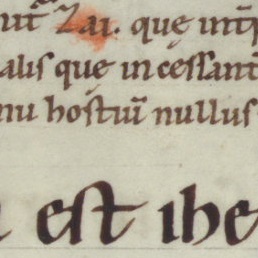 Zai. que
alis que incessant
nu hostiu nullus
est ihe